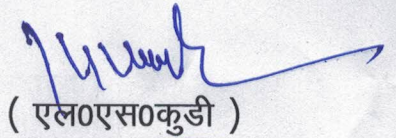 ( एल0एस0कुडी )